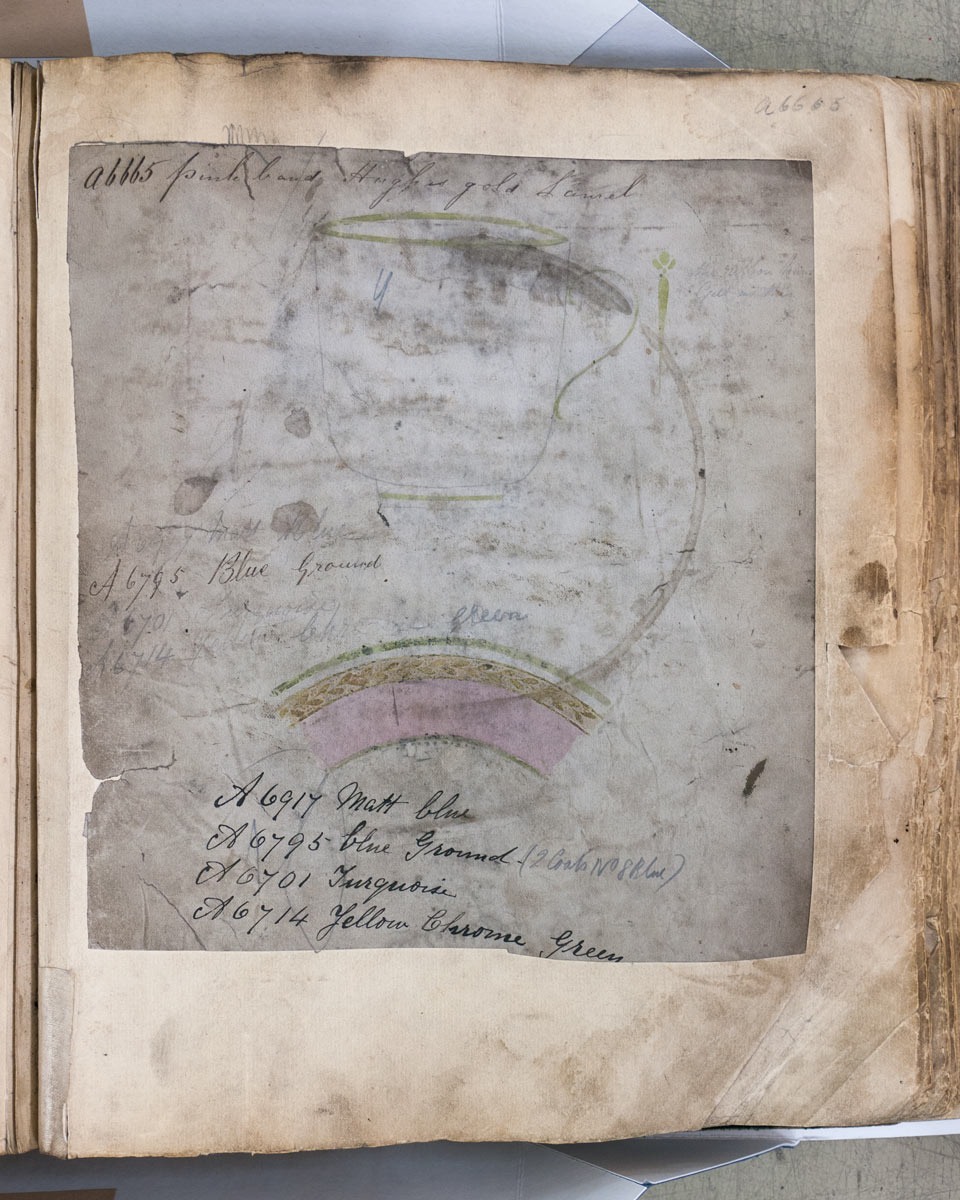 a6665
a6665 pink band Hughes gold Laurel
4
Matt Blue
A 6795 Blue Ground
6701
A 6714
green
A 6917 Matt blue
A 6795 blue Ground (2 Coats No 8 Blue)
A 6701 Turquoise
A 6714 Yellow Chrome Green